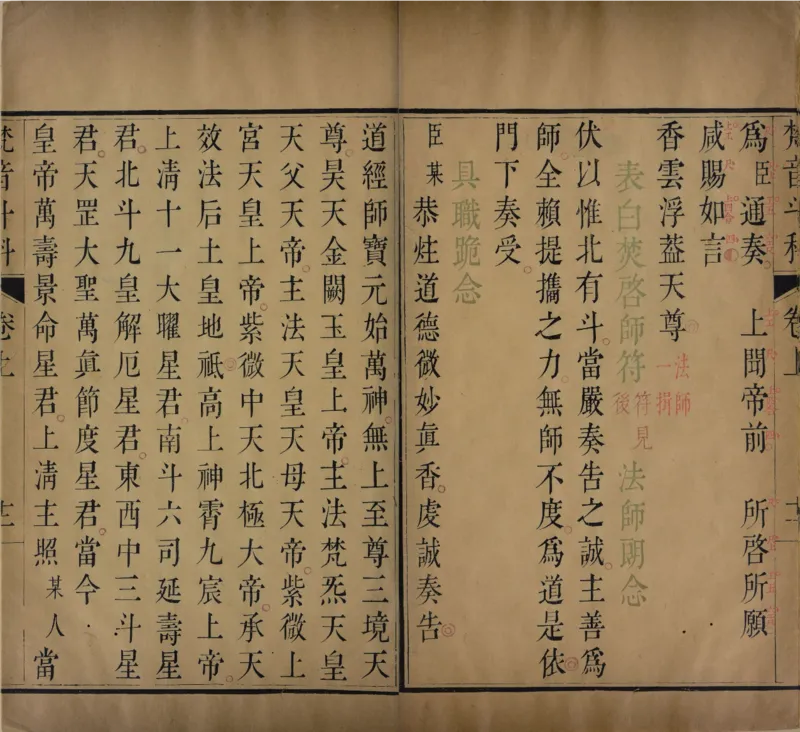 梵音斗科 卷上 十二
爲臣通奏 上聞帝前 所啓所願
咸賜如言
香雲浮蓋天尊 法師一揖
表白焚啓師符 符見後 法師朗念
伏以惟北有斗當嚴奏告之誠主善爲
師全賴提攜之力無師不度爲道是依
門下奏受
具職跪念
臣某恭炷道德微妙眞香虔誠奏告
道經師寶元始萬神無上至尊三境天
尊昊天金闕玉皇上帝主法梵炁天皇
天父天帝主法天皇天母天帝紫微上
宮天皇上帝紫微中天北極大帝承天
效法后土皇地祇高上神霄九宸上帝
上淸十一大曜星君南斗六司延壽星
君北斗九皇解厄星君東西中三斗星
君天罡大聖萬眞節度星君當今
皇帝萬壽景命星君上淸主照某人當
梵音斗科 卷上 十二